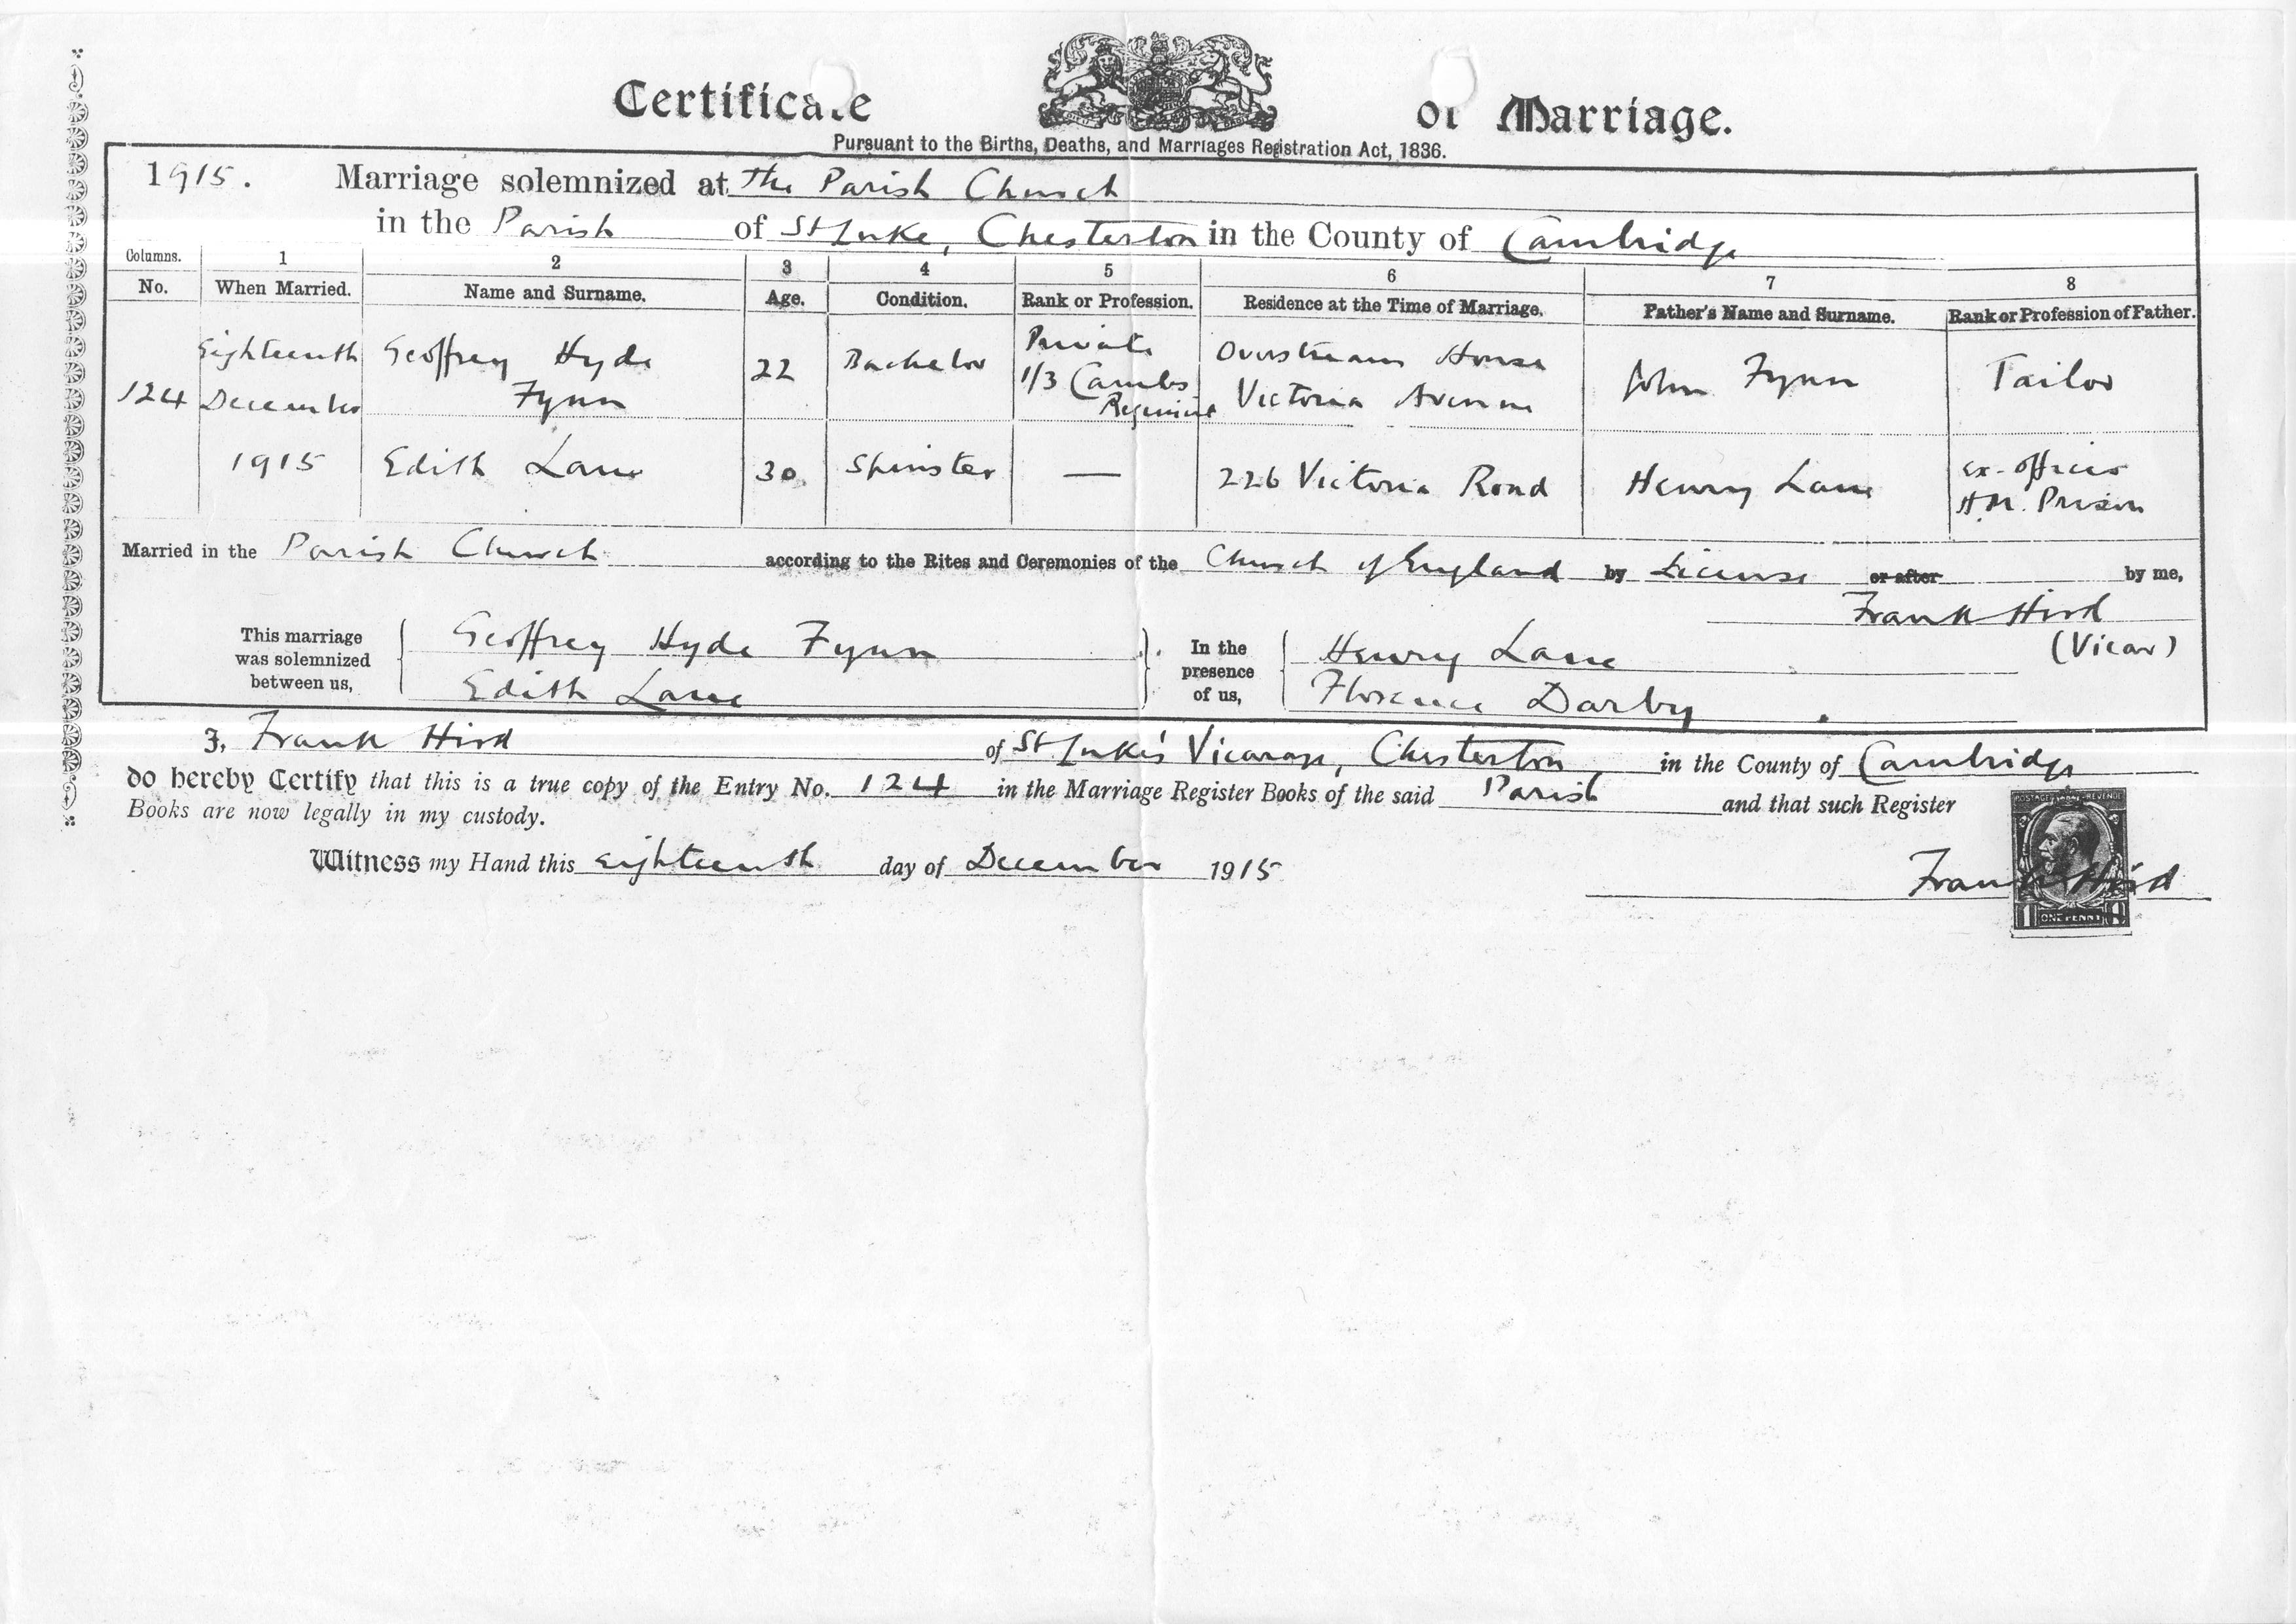 Certificate of Marriage.
Pursuant to the Births, Deaths, and Marriages Registration Act, 1836.
1915. Marriage solemnized at the Parish Church
in the Parish of St Luke, Chesterton in the County of Cambridge
Columns. 1 2 3 4 5 6 7 8
No. When Married. Name and Surname. Age. Condition. Rank or Profession. Residence at the Time of Marriage. Father's Name and Surname. Rank or Profession of Father.
124 Eighteenth December 1915 Geoffrey Hyde Fynn 22 Bachelor Private 1/3 Cambs Regiment Overstream House Victoria Avenue John Fynn Tailor
Edith Lane 30 Spinster — 226 Victoria Road Henry Lane ex-officer H.M. Prison
Married in the Parish Church according to the Rites and Ceremonies of the Church of England by License or after by me,
Frank Hird
(Vicar)
This marriage was solemnized between us, Geoffrey Hyde Fynn Edith Lane
In the presence of us, Henry Lane Florence Darby
I, Frank Hird of St Luke's Vicarage, Chesterton in the County of Cambridge
do hereby Certify that this is a true copy of the Entry No. 124 in the Marriage Register Books of the said Parish and that such Register
Books are now legally in my custody.
Witness my Hand this eighteenth day of December 1915
Frank Hird
POSTAGE REVENUE
1 ONE PENNY 1